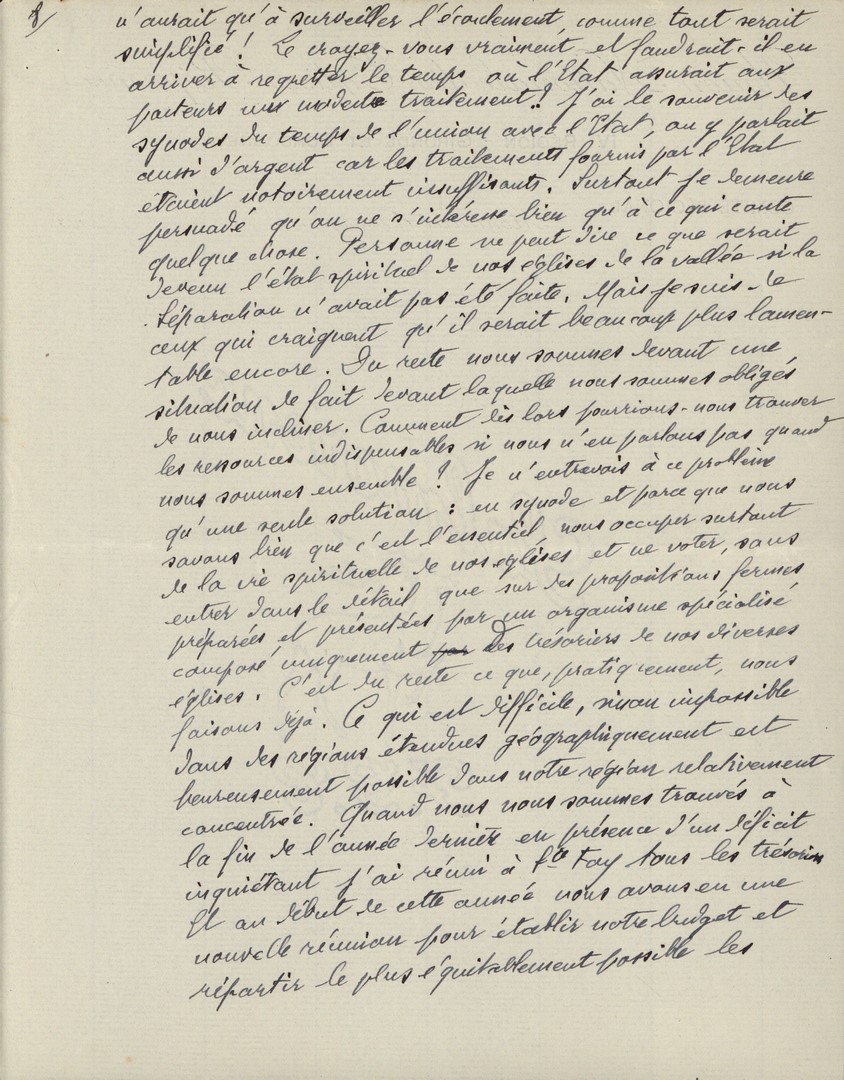 8/
n'aurait qu'à surveiller l'écoulement, comme tout serait
simplifié! Le croyez-vous vraiment, et faudrait-il en
arriver à regretter le temps où l'Etat assurait aux
pasteurs un modeste traitement? J'ai le souvenir des
synodes du temps de l'union avec l'Etat, on y parlait
aussi d'argent car les traitements fournis par l'Etat
étaient notoirement insuffisants. Surtout je demeure
persuadé qu'on ne s'intéresse bien qu'à ce qui coute
quelque chose. Personne ne peut dire ce que serait
devenu l'état spirituel de nos églises de la vallée si la
Séparation n'avait pas été faite. Mais je suis de
ceux qui craignent qu'il serait beaucoup plus lamen-
table encore. Du reste nous sommes devant une
situation de fait devant laquelle nous sommes obligés
de nous incliner. Comment dès lors pourrions-nous trouver
les ressources indispensables si nous n'en parlons pas quand
nous sommes ensemble? Je n'entrevois à ce problème
qu'une seule solution : en synode et parce que nous
savons bien que c'est l'essentiel, nous occuper surtout
de la vie spirituelle de nos églises et ne voter, sans
entrer dans le détail que sur des propositions fermes
préparées et présentées par un organisme spécialisé
composé uniquement par Des trésoriers de nos diverses
églises. C'est du reste ce que, pratiquement, nous
faisons déjà. Ce qui est difficile, sinon impossible
dans des régions étendues géographiquement est
heureusement possible dans notre région relativement
concentrée. Quand nous nous sommes trouvés à
la fin de l'année dernière en présence d'un déficit
inquiétant j'ai réuni à Ste Foy tous les trésoriers
Et au début de cette année nous avons eu une
nouvelle réunion pour établir notre budget et
répartir le plus équitablement possible les